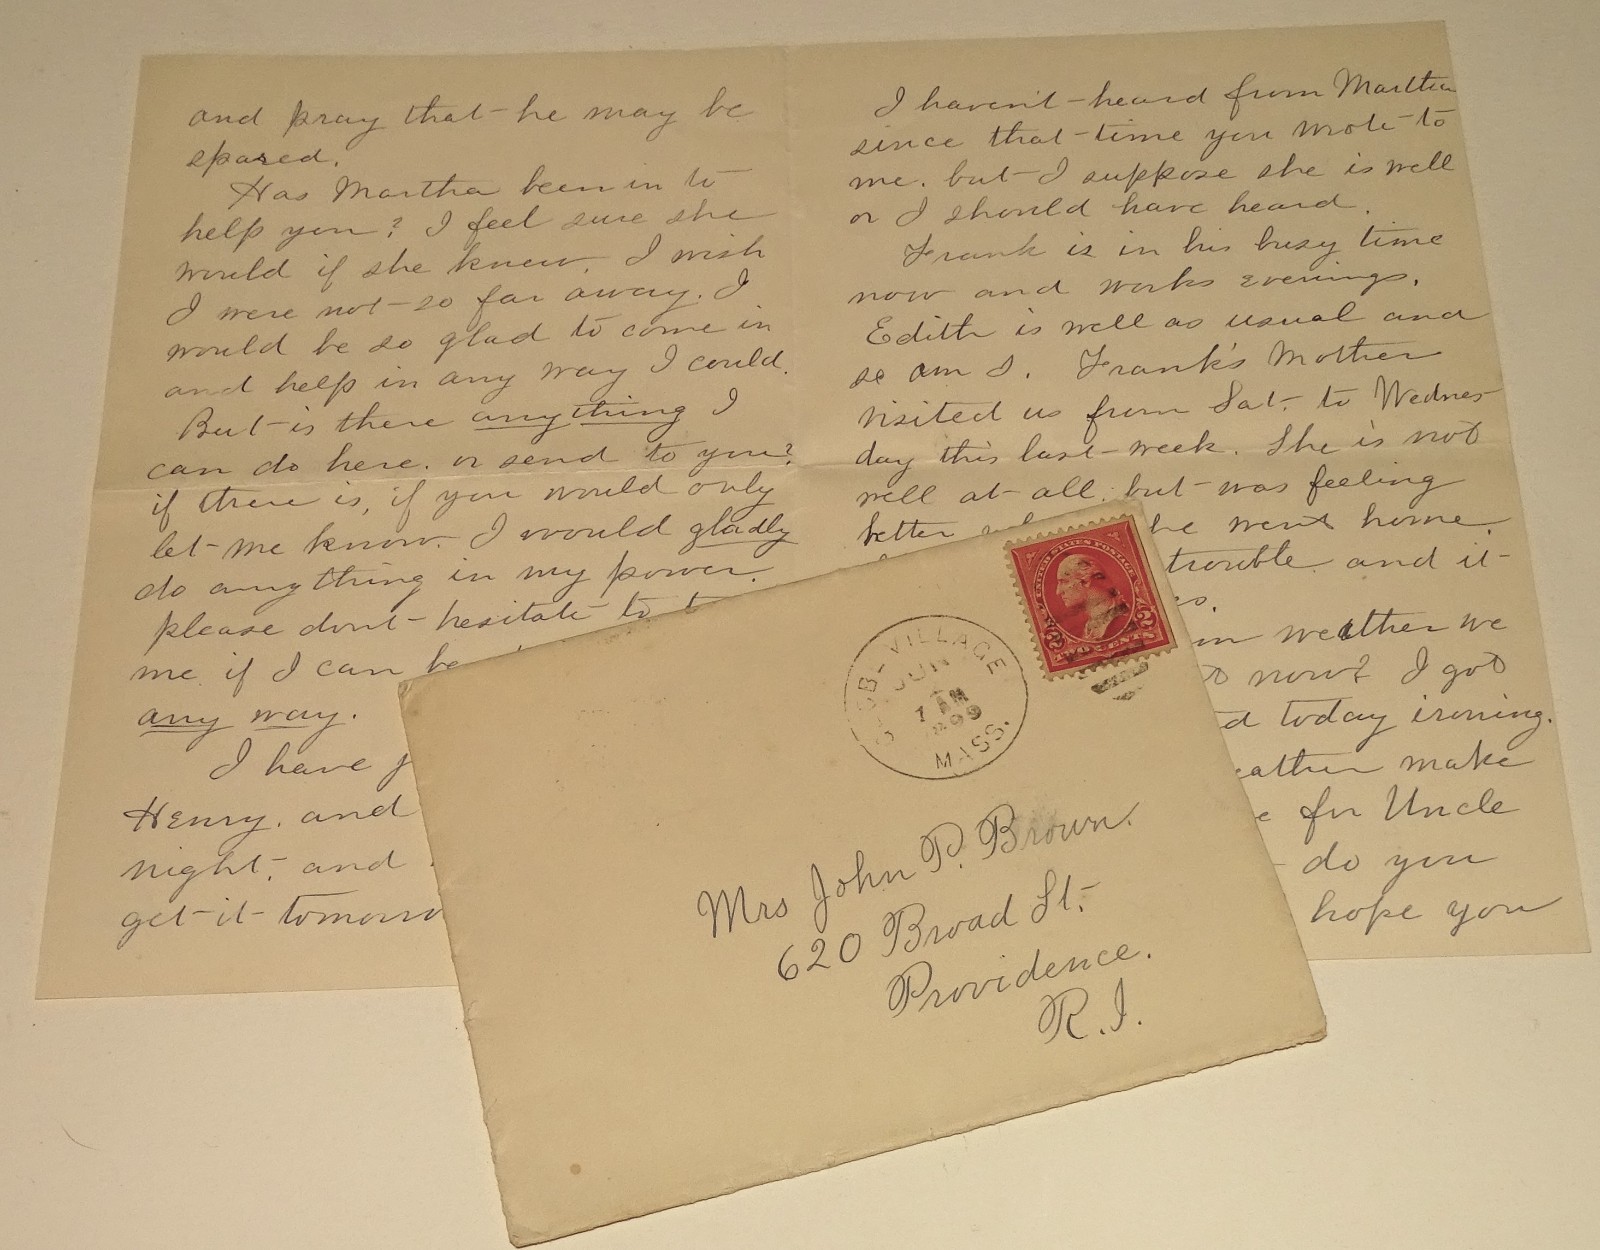 and pray that he may be
spared.
Has Martha been in to
help you? I feel sure she
would if she knew. I wish
I were not so far away. I
would be so glad to come in
and help in any way I could.
But is there anything I
can do here. or send to you?
if there is, if you would only
let me know. I would gladly
do anything in my power.
please dont hesitate to
me if I can be
any way.
I have
Henry. and
night, and
get it tomorro
I haven't heard from Martha
since that time you wrote to
me. but I suppose she is well
or I should have heard.
Frank is in his busy time
now and works evenings.
Edith is well as usual and
so am I. Frank's Mother
visited us from Sat. to Wednes
day this last week. She is not
well at all. but was feeling
better he went home.
trouble and it
es.
weather we
now? I got
ed today ironing.
eather make
e for Uncle
do you
hope you
VILLAGE
JUN
1 AM
1899
MASS.
UNITED STATES POSTAGE
2 2
TWO CENTS
Mrs John P. Brown.
620 Broad St.
Providence.
R.I.